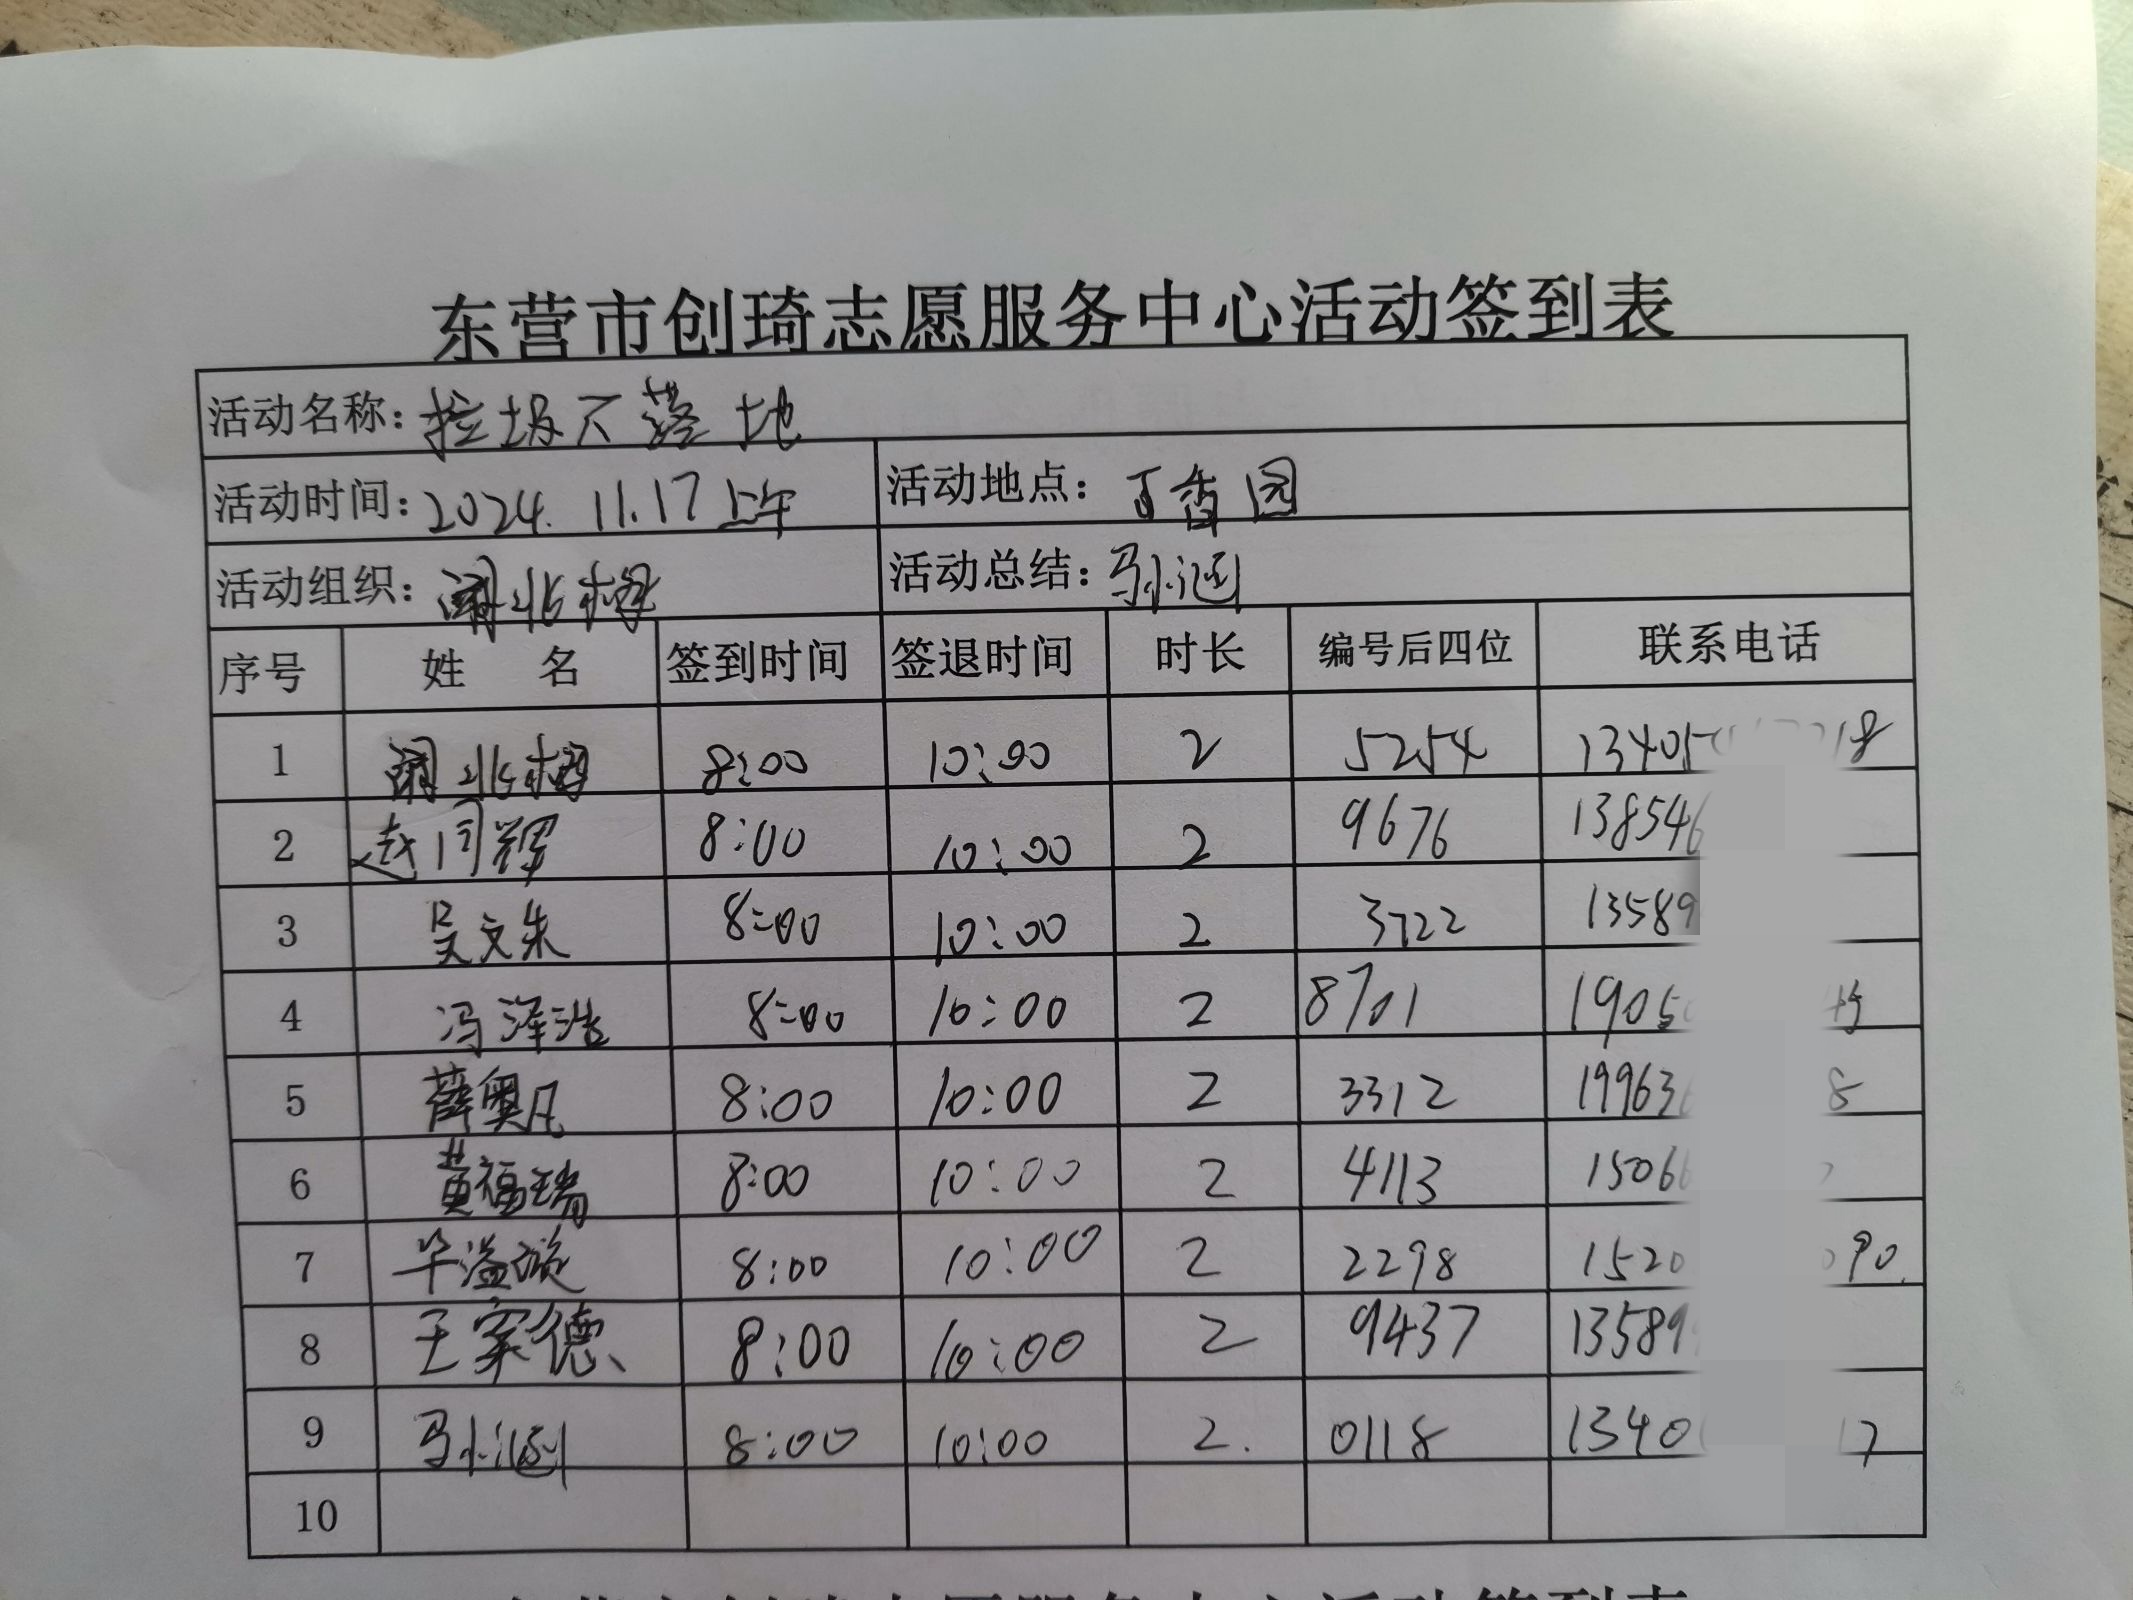 东营市创琦志愿服务中心活动签到表
活动名称：垃圾不落地
活动时间：2024.11.17上午 活动地点：丁香园
活动组织： 活动总结：马小涵
序号 姓 名 签到时间 签退时间 时长 编号后四位 联系电话
1 8:00 10:00 2 5254 13405 18
2 赵同辉 8:00 10:00 2 9676 138546
3 吴文朱 8:00 10:00 2 3722 13589
4 冯泽浩 8:00 10:00 2 8701 1905
5 薛奥凡 8:00 10:00 2 3312 19963 8
6 黄福瑞 8:00 10:00 2 4113 1506
7 8:00 10:00 2 2298 1520 090.
8 王家德 8:00 10:00 2 9437 13589
9 马小涵 8:00 10:00 2. 0118 1340 17
10